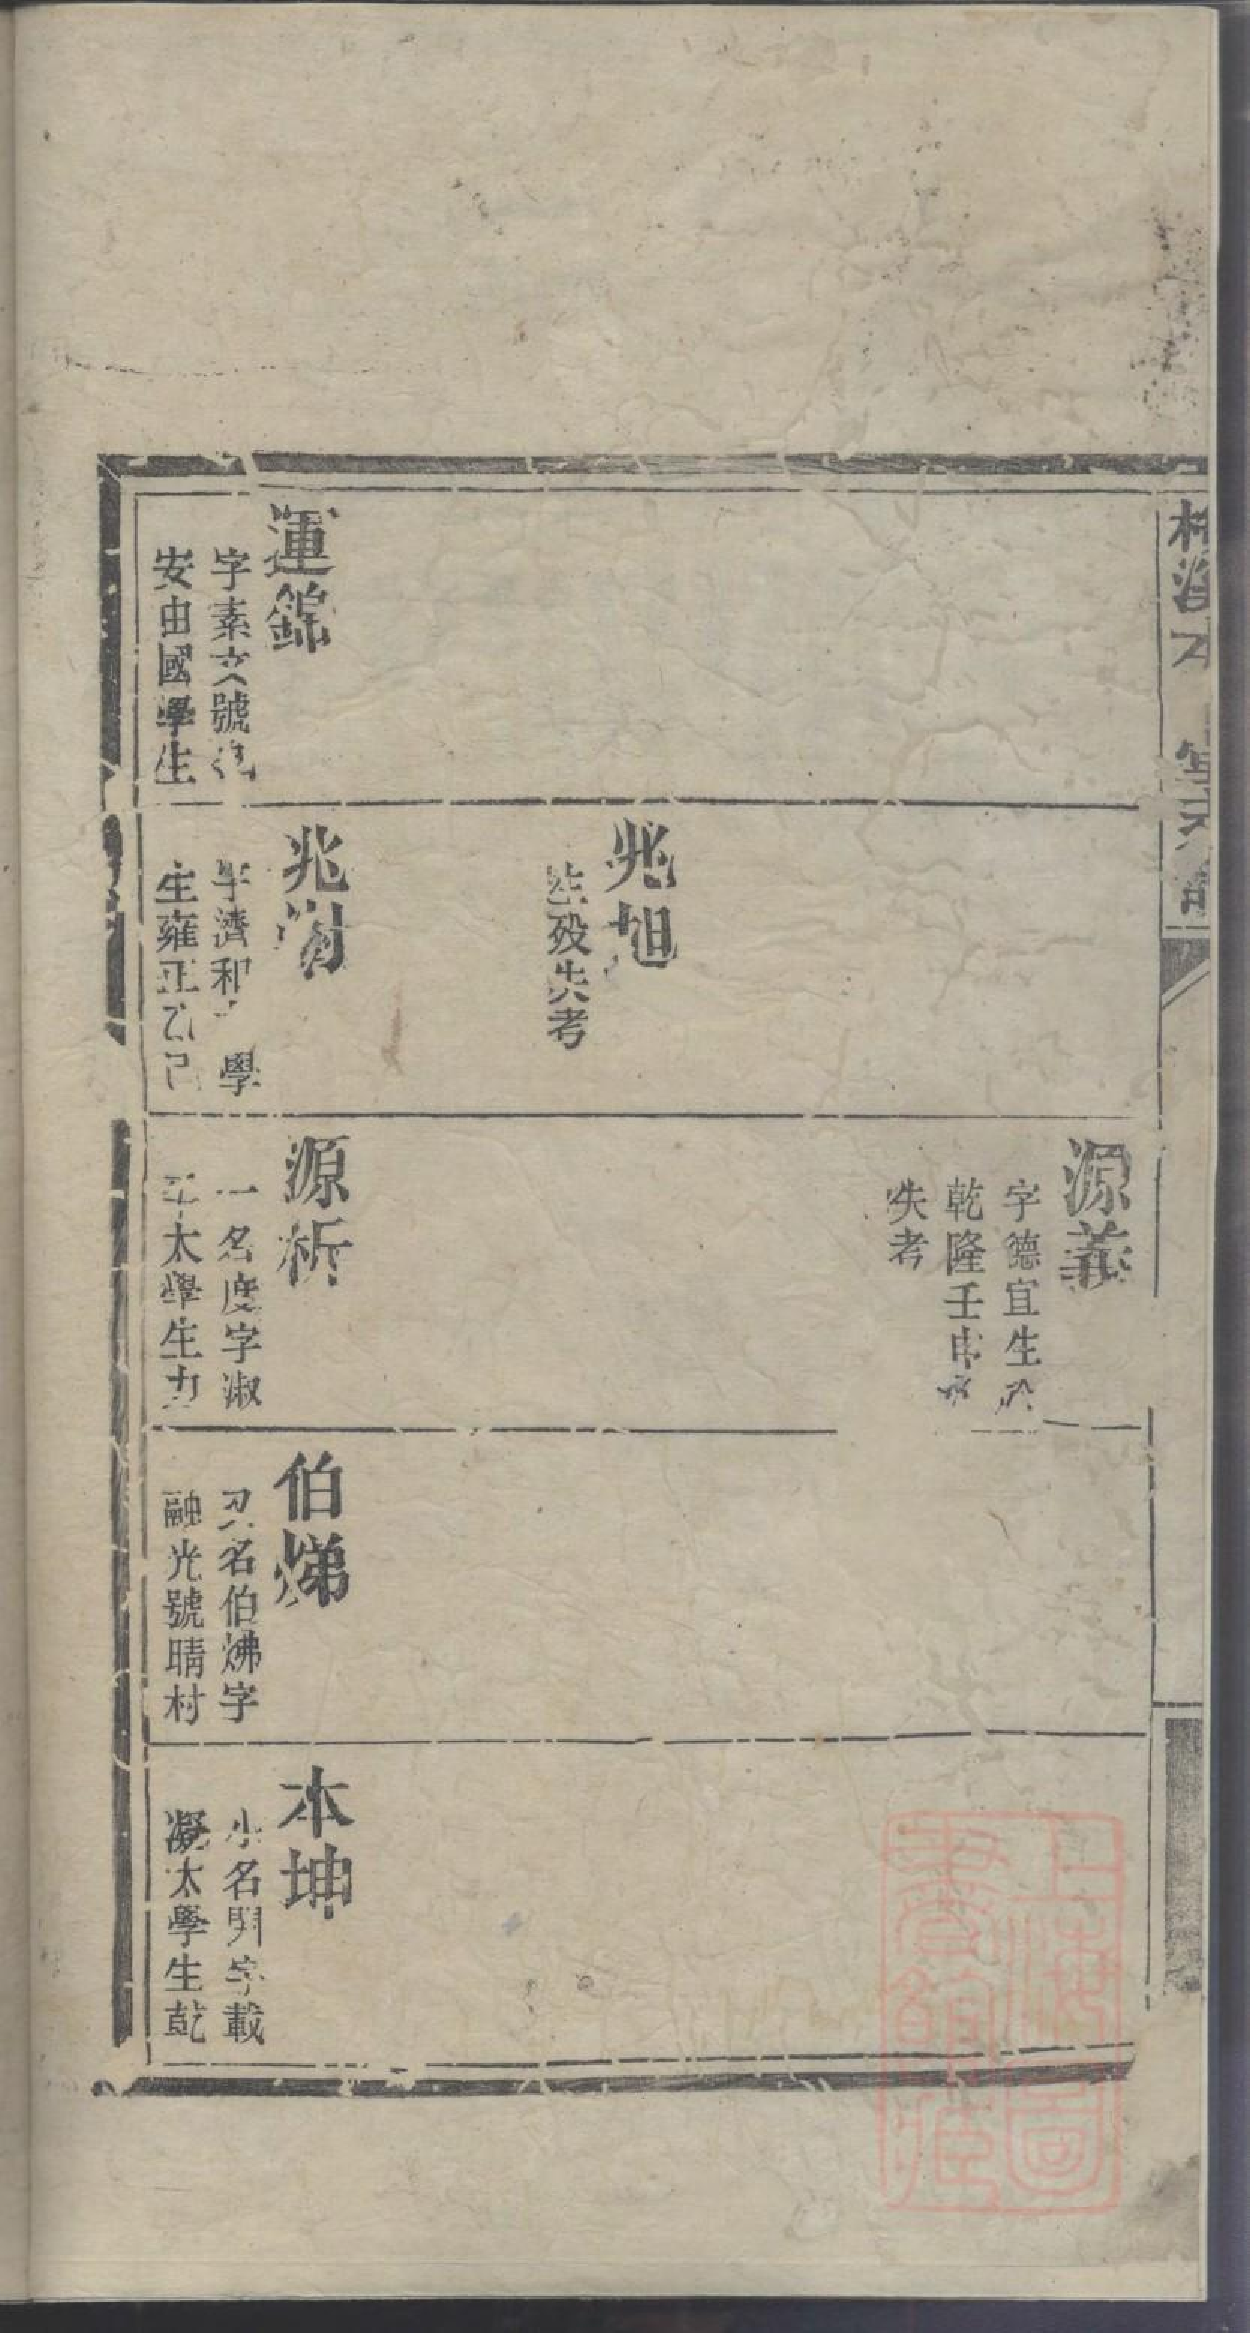 源義
字德宜生於
乾隆壬申
失考
兆旭
生歿失考
運錦
字素文號
安由國學生
兆
字濟和 學
生雍正乙巳
源析
一名度字淑
太學生
伯焍
又名伯烞字
融光號晴村
本坤
小名 字載
凝太學生乾
上海圖
書館藏